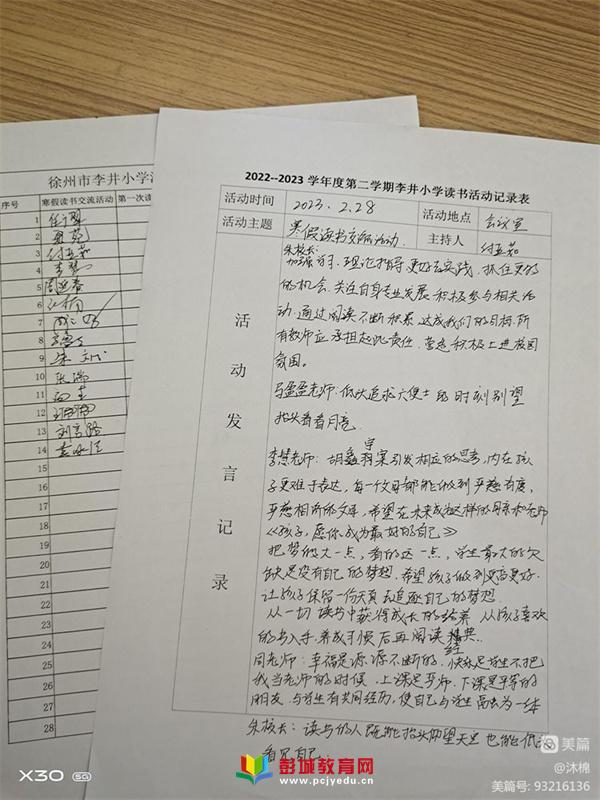 徐州市李井小学
序号
寒假读书交流活动
第一次读
1
2
3 付玉茹
4 李慧
5 周
6
7
8
9 朱
10 张
11
12
13 刘
14
15
16
17
18
19
20
21
22
23
24
25
26
27
28
2022--2023 学年度第二学期李井小学读书活动记录表
活动时间 2023.2.28 活动地点 会议室
活动主题 寒假读书交流活动 主持人 付玉茹
活动发言记录
朱校长:
加强学习,理论指导更好去实践,抓住更多
的机会,关注自身专业发展积极参与相关活
动,通过阅读不断积累达成我们的目标,所
有教师应承担起此责任,营造积极上进校园
氛围。
马盈盈老师:低头追求六便士的时刻别望
抬头看看月亮。
李慧老师:胡鑫宇案引发相应的思考,内在孩
子更难于表达,每一个父母都能做到严慈有度,
严慈相济的父母,希望在未来成为这样的母亲和老师
《孩子,愿你成为最好的自己》
把梦做大一点,看的远一点,学生最大的欠
缺是没有自己的梦想,希望孩子做到更高更好.
让孩子保留一份天真去追逐自己的梦想.
从一切读书中获得成长的培养 从孩子喜欢
的书入手,养成习惯后再阅读经典.
周老师:幸福是源源不断的,快乐是学生不把
我当老师的时候,上课是严师,下课是平等的
朋友,与学生有共同经历,使自己与学生融为一体
朱校长:读书的人既能抬头仰望天空也能低
看见自己.
X30 5G
彭城教育网
www.pcjyedu.cn
美篇
@沐棉
美篇号: 93216136